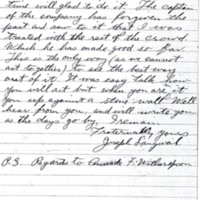 time will glad to do it. The captain
of the company has forgiven the
past and saw to it that I was
treated with the rest of the crowd.
Which he has made good so far.
This is the only way (as we cannot
act together) to see the best way
out of it. It was easy talk how
you will act but when you are it
you up against a stone wall. Well
hear from you, and will write you
as the days go by. I remain
Fraternally yours
Joseph
P.S. Regards to F. Witherspoon